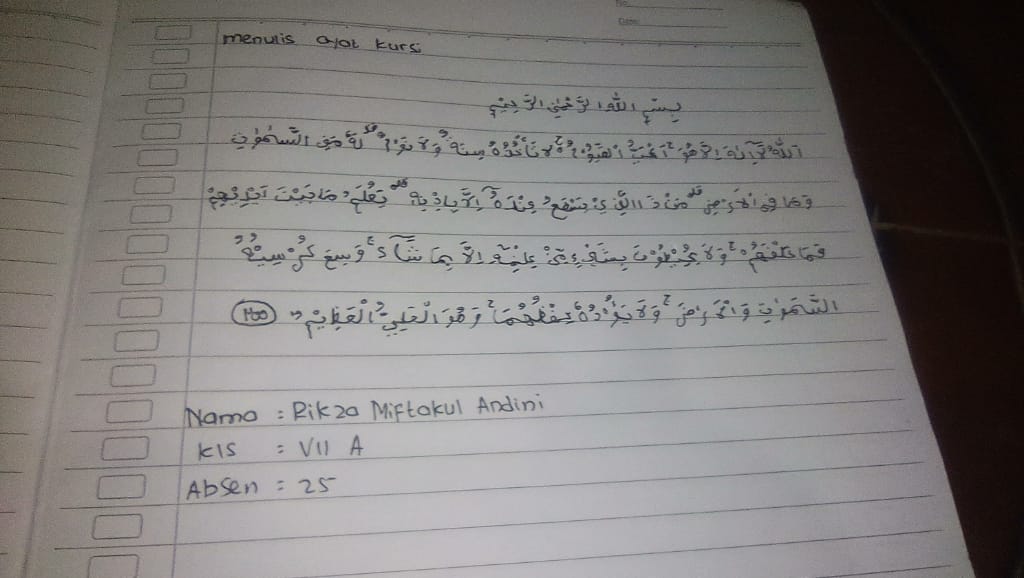 No.
Date:
menulis ayat kursi
بِسْمِ اللهِ الرَّحْمٰنِ الرَّحِيْمِ
اَللهُ لَآ اِلٰهَ اِلَّا هُوَ ۚ اَلْحَيُّ الْقَيُّوْمُ ەۚ لَا تَأْخُذُهٗ سِنَةٌ وَّلَا نَوْمٌ ۗ لَهٗ مَا فِى السَّمٰوٰتِ
وَمَا فِى الْاَرْضِ ۗ مَنْ ذَا الَّذِيْ يَشْفَعُ عِنْدَهٗٓ اِلَّا بِاِذْنِهٖ ۗ يَعْلَمُ مَا بَيْنَ اَيْدِيْهِمْ
وَمَا خَلْفَهُمْ ۚ وَلَا يُحِيْطُوْنَ بِشَيْءٍ مِّنْ عِلْمِهٖٓ اِلَّا بِمَا شَآءَ ۚ وَسِعَ كُرْسِيُّهُ
السَّمٰوٰتِ وَالْاَرْضَ ۚ وَلَا يَـُٔوْدُهٗ حِفْظُهُمَا ۚ وَهُوَ الْعَلِيُّ الْعَظِيْمُ ٢٥٥
Nama : Rikza Miftakul Andini
Kls : VII A
Absen : 25